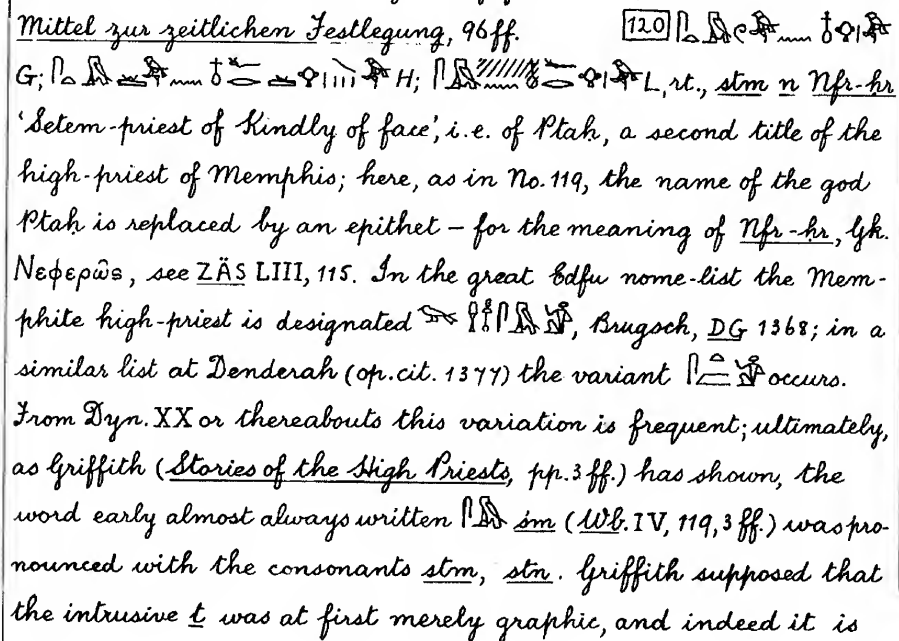 Mittel zur zeitlichen Festlegung, 96ff. [120]
G; H; L, rt., stm n Nfr-ḥr
‘Setem-priest of Kindly of face’, i.e. of Ptaḥ, a second title of the
high-priest of Memphis; here, as in No. 119, the name of the god
Ptaḥ is replaced by an epithet – for the meaning of Nfr-ḥr, Gk.
Νεφερῶς, see ZÄS LIII, 115. In the great Edfu nome-list the Mem-
phite high-priest is designated , Brugsch, DG 1368; in a
similar list at Denderah (op. cit. 1377) the variant occurs.
From Dyn. XX or thereabouts this variation is frequent; ultimately,
as Griffith (Stories of the High Priests, pp. 3 ff.) has shown, the
word early almost always written śm (Wb. IV, 119, 3 ff.) was pro-
nounced with the consonants stm, stn. Griffith supposed that
the intrusive t was at first merely graphic, and indeed it is